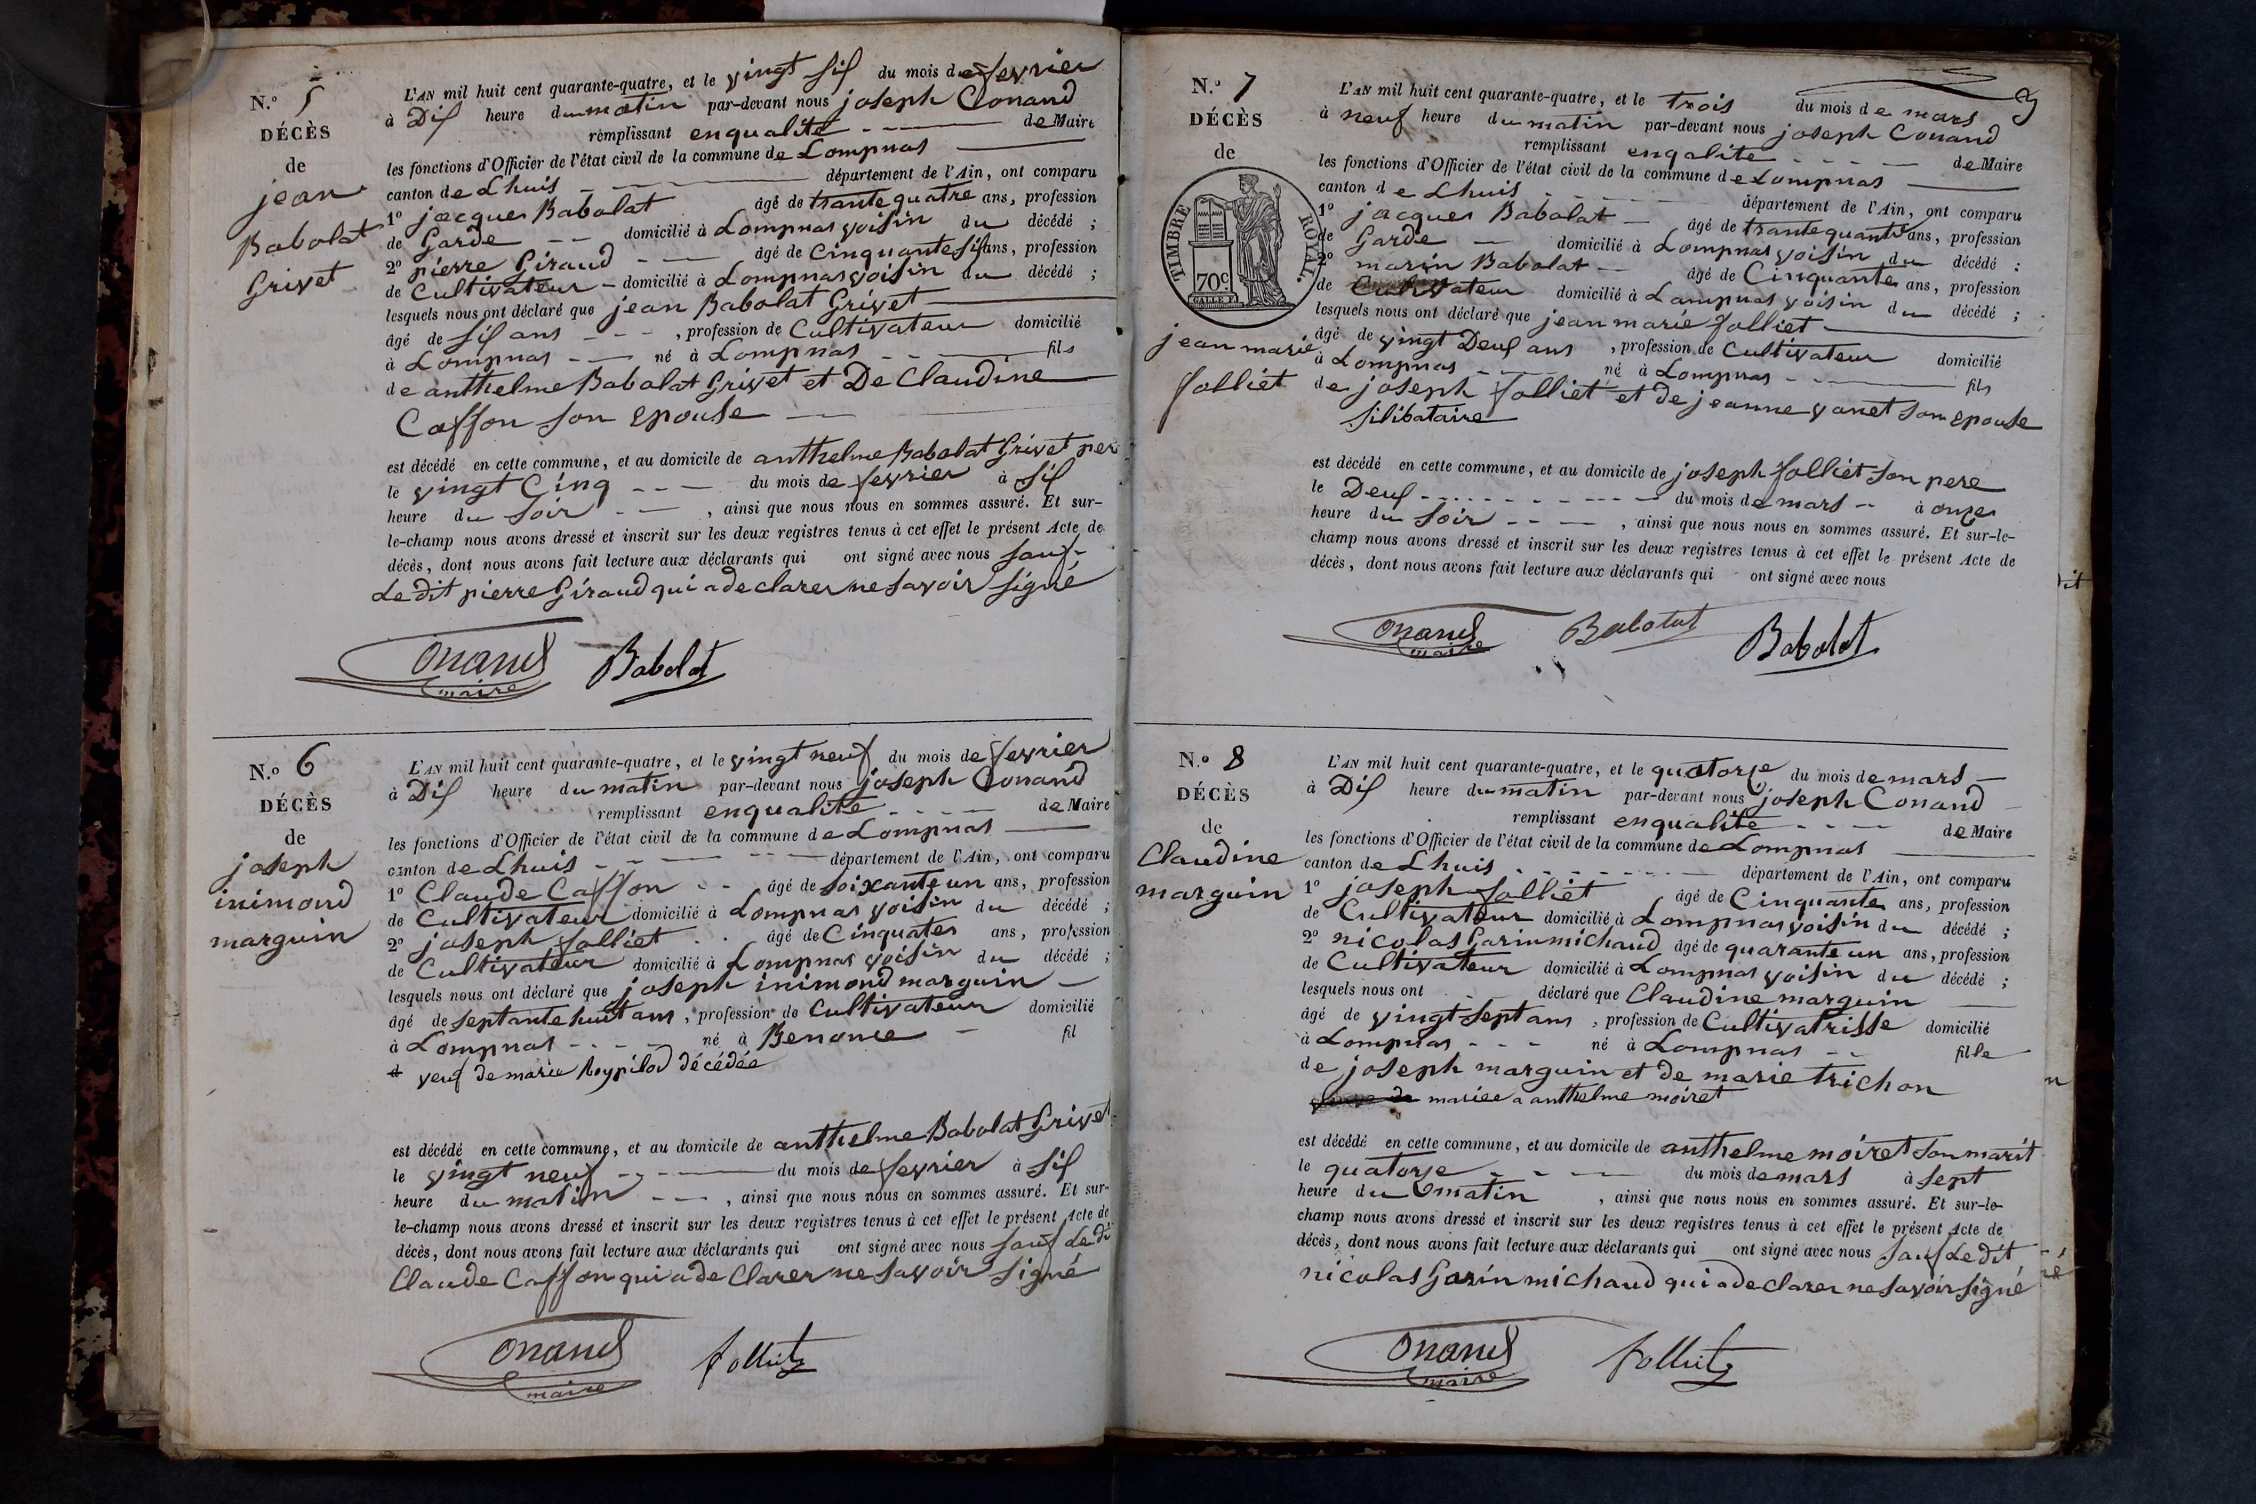 N.° 5
DÉCÈS
de
jean
Babolat
Grivet
L'AN mil huit cent quarante-quatre, et le vingt sif du mois de fevrier
à Dif heure du matin par-devant nous joseph Conand
remplissant enqualité de Maire
les fonctions d'Officier de l'état civil de la commune de Lompnas
canton de Lhuis département de l'Ain, ont comparu
1° jacques Babolat âgé de trante quatre ans, profession
de Garde domicilié à Lompnas voisin du décédé ;
2° pierre Giraud âgé de Cinquante sif ans, profession
de Cultivateur domicilié à Lompnas voisin du décédé ;
lesquels nous ont déclaré que jean Babolat Grivet
âgé de sif ans , profession de Cultivateur domicilié
à Lompnas né à Lompnas fils
de anthelme Babolat Grivet et De Claudine
Caffon son epouse
est décédé en cette commune, et au domicile de anthelme Babolat Grivet per
le vingt Cinq du mois de fevrier à sif
heure du soir , ainsi que nous nous en sommes assuré. Et sur-
le-champ nous avons dressé et inscrit sur les deux registres tenus à cet effet le présent Acte de
décès, dont nous avons fait lecture aux déclarants qui ont signé avec nous sauf
Ledit pierre Giraud qui a declarer ne savoir signé
Onand
maire
Babolat
N.° 6
DÉCÈS
de
joseph
inimond
marguin
L'AN mil huit cent quarante-quatre, et le vingt neuf du mois de fevrier
à Dif heure du matin par-devant nous joseph Conand
remplissant enqualité de Maire
les fonctions d'Officier de l'état civil de la commune de Lompnas
canton de Lhuis département de l'Ain, ont comparu
1° Claude Caffon âgé de soixante un ans, profession
de Cultivateur domicilié à Lompnas voisin du décédé ;
2° joseph folliet âgé de Cinquates ans, profession
de Cultivateur domicilié à Lompnas voisin du décédé ;
lesquels nous ont déclaré que joseph inimond marguin
âgé de septante huit ans , profession de Cultivateur domicilié
à Lompnas né à Benonce fil
d veuf de marie Roypilod décédée
est décédé en cette commune, et au domicile de anthelme Babolat Grivet
le vingt neuf du mois de fevrier à sif
heure du matin , ainsi que nous nous en sommes assuré. Et sur-
le-champ nous avons dressé et inscrit sur les deux registres tenus à cet effet le présent Acte de
décès, dont nous avons fait lecture aux déclarants qui ont signé avec nous sauf Le di
Claude Caffon qui a de Clarer ne savoir signé
Onand
maire
folliet
N.° 7
DÉCÈS
de
TIMBRE ROYAL.
70c
jean marie
folliet
3
L'AN mil huit cent quarante-quatre, et le trois du mois de mars
à neuf heure du matin par-devant nous joseph Conand
remplissant enqalite de Maire
les fonctions d'Officier de l'état civil de la commune de Lompnas
canton de Lhuis département de l'Ain, ont comparu
1° jacques Babolat âgé de trante quantre ans, profession
de Garde domicilié à Lompnas voisin du décédé ;
2° marin Babolat âgé de Cinquante ans, profession
de Cultivateur domicilié à Lompnas voisin du décédé ;
lesquels nous ont déclaré que jean marie folliet
âgé de vingt Deuf ans , profession de Cultivateur domicilié
à Lompnas né à Lompnas fils
de joseph folliet et de jeanne vanet son epouse
silibataire
est décédé en cette commune, et au domicile de joseph folliet son pere
le Deuf du mois de mars à onze
heure du soir , ainsi que nous nous en sommes assuré. Et sur-le-
champ nous avons dressé et inscrit sur les deux registres tenus à cet effet le présent Acte de
décès, dont nous avons fait lecture aux déclarants qui ont signé avec nous
Onand
maire
Babolat
Babolat
N.° 8
DÉCÈS
de
Claudine
marguin
L'AN mil huit cent quarante-quatre, et le quatorze du mois de mars
à Dif heure du matin par-devant nous joseph Conand
remplissant enqualité de Maire
les fonctions d'Officier de l'état civil de la commune de Lompnas
canton de Lhuis département de l'Ain, ont comparu
1° joseph folliet âgé de Cinquante ans, profession
de Cultivateur domicilié à Lompnas voisin du décédé ;
2° nicolas Garin michaud âgé de quarante un ans, profession
de Cultivateur domicilié à Lompnas voisin du décédé ;
lesquels nous ont déclaré que Claudine marguin
âgé de vingt sept ans , profession de Cultivatrisse domicilié
à Lompnas né à Lompnas fille
de joseph marguin et de marie trichon
mariee a anthelme moiret
est décédé en cette commune, et au domicile de anthelme moiret son marit
le quatorze du mois de mars à sept
heure du matin , ainsi que nous nous en sommes assuré. Et sur-le-
champ nous avons dressé et inscrit sur les deux registres tenus à cet effet le présent Acte de
décès, dont nous avons fait lecture aux déclarants qui ont signé avec nous sauf Le dit
nicolas Garin michaud qui a declarer ne savoir signé
Onand
maire
folliet